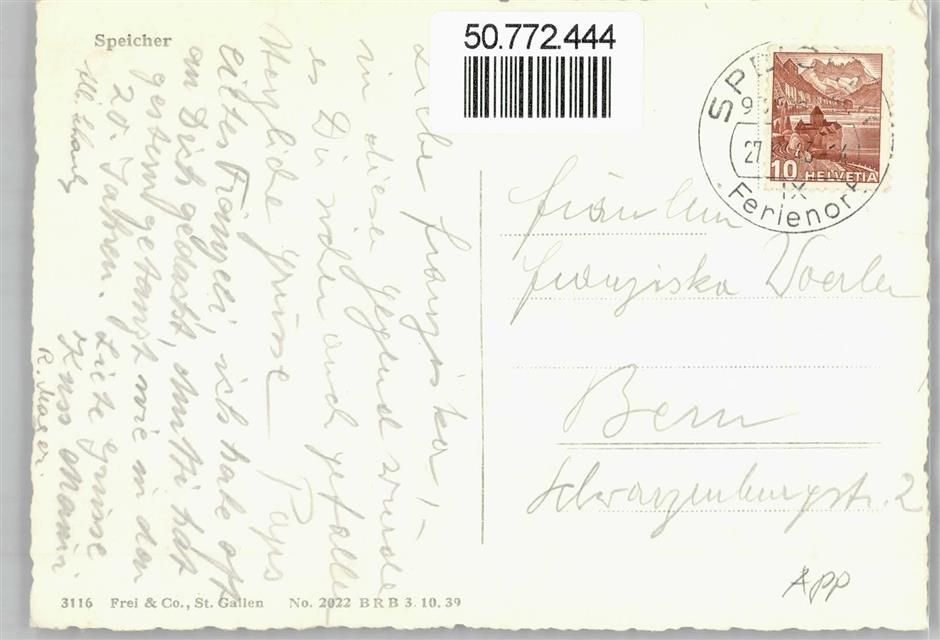 Speicher
50.772.444
Liebe Franziska! –
in diese Gegend würde
es Dir wohl auch gefallen
Herzliche Grüsse Paps
ich habe oft
an Dich gedacht, Mutti hat
gestern getanzt wie in den
20. Jahren. Liebe Grüsse
Kuss Mami
R. Mager
27. 43 -4
IX
Ferienort
10 HELVETIA
Fräulein
Franziska Woerlen
Bern
Schwarzenburgstr. 2
APP
3116 Frei & Co., St. Gallen No. 2022 BRB 3. 10. 39